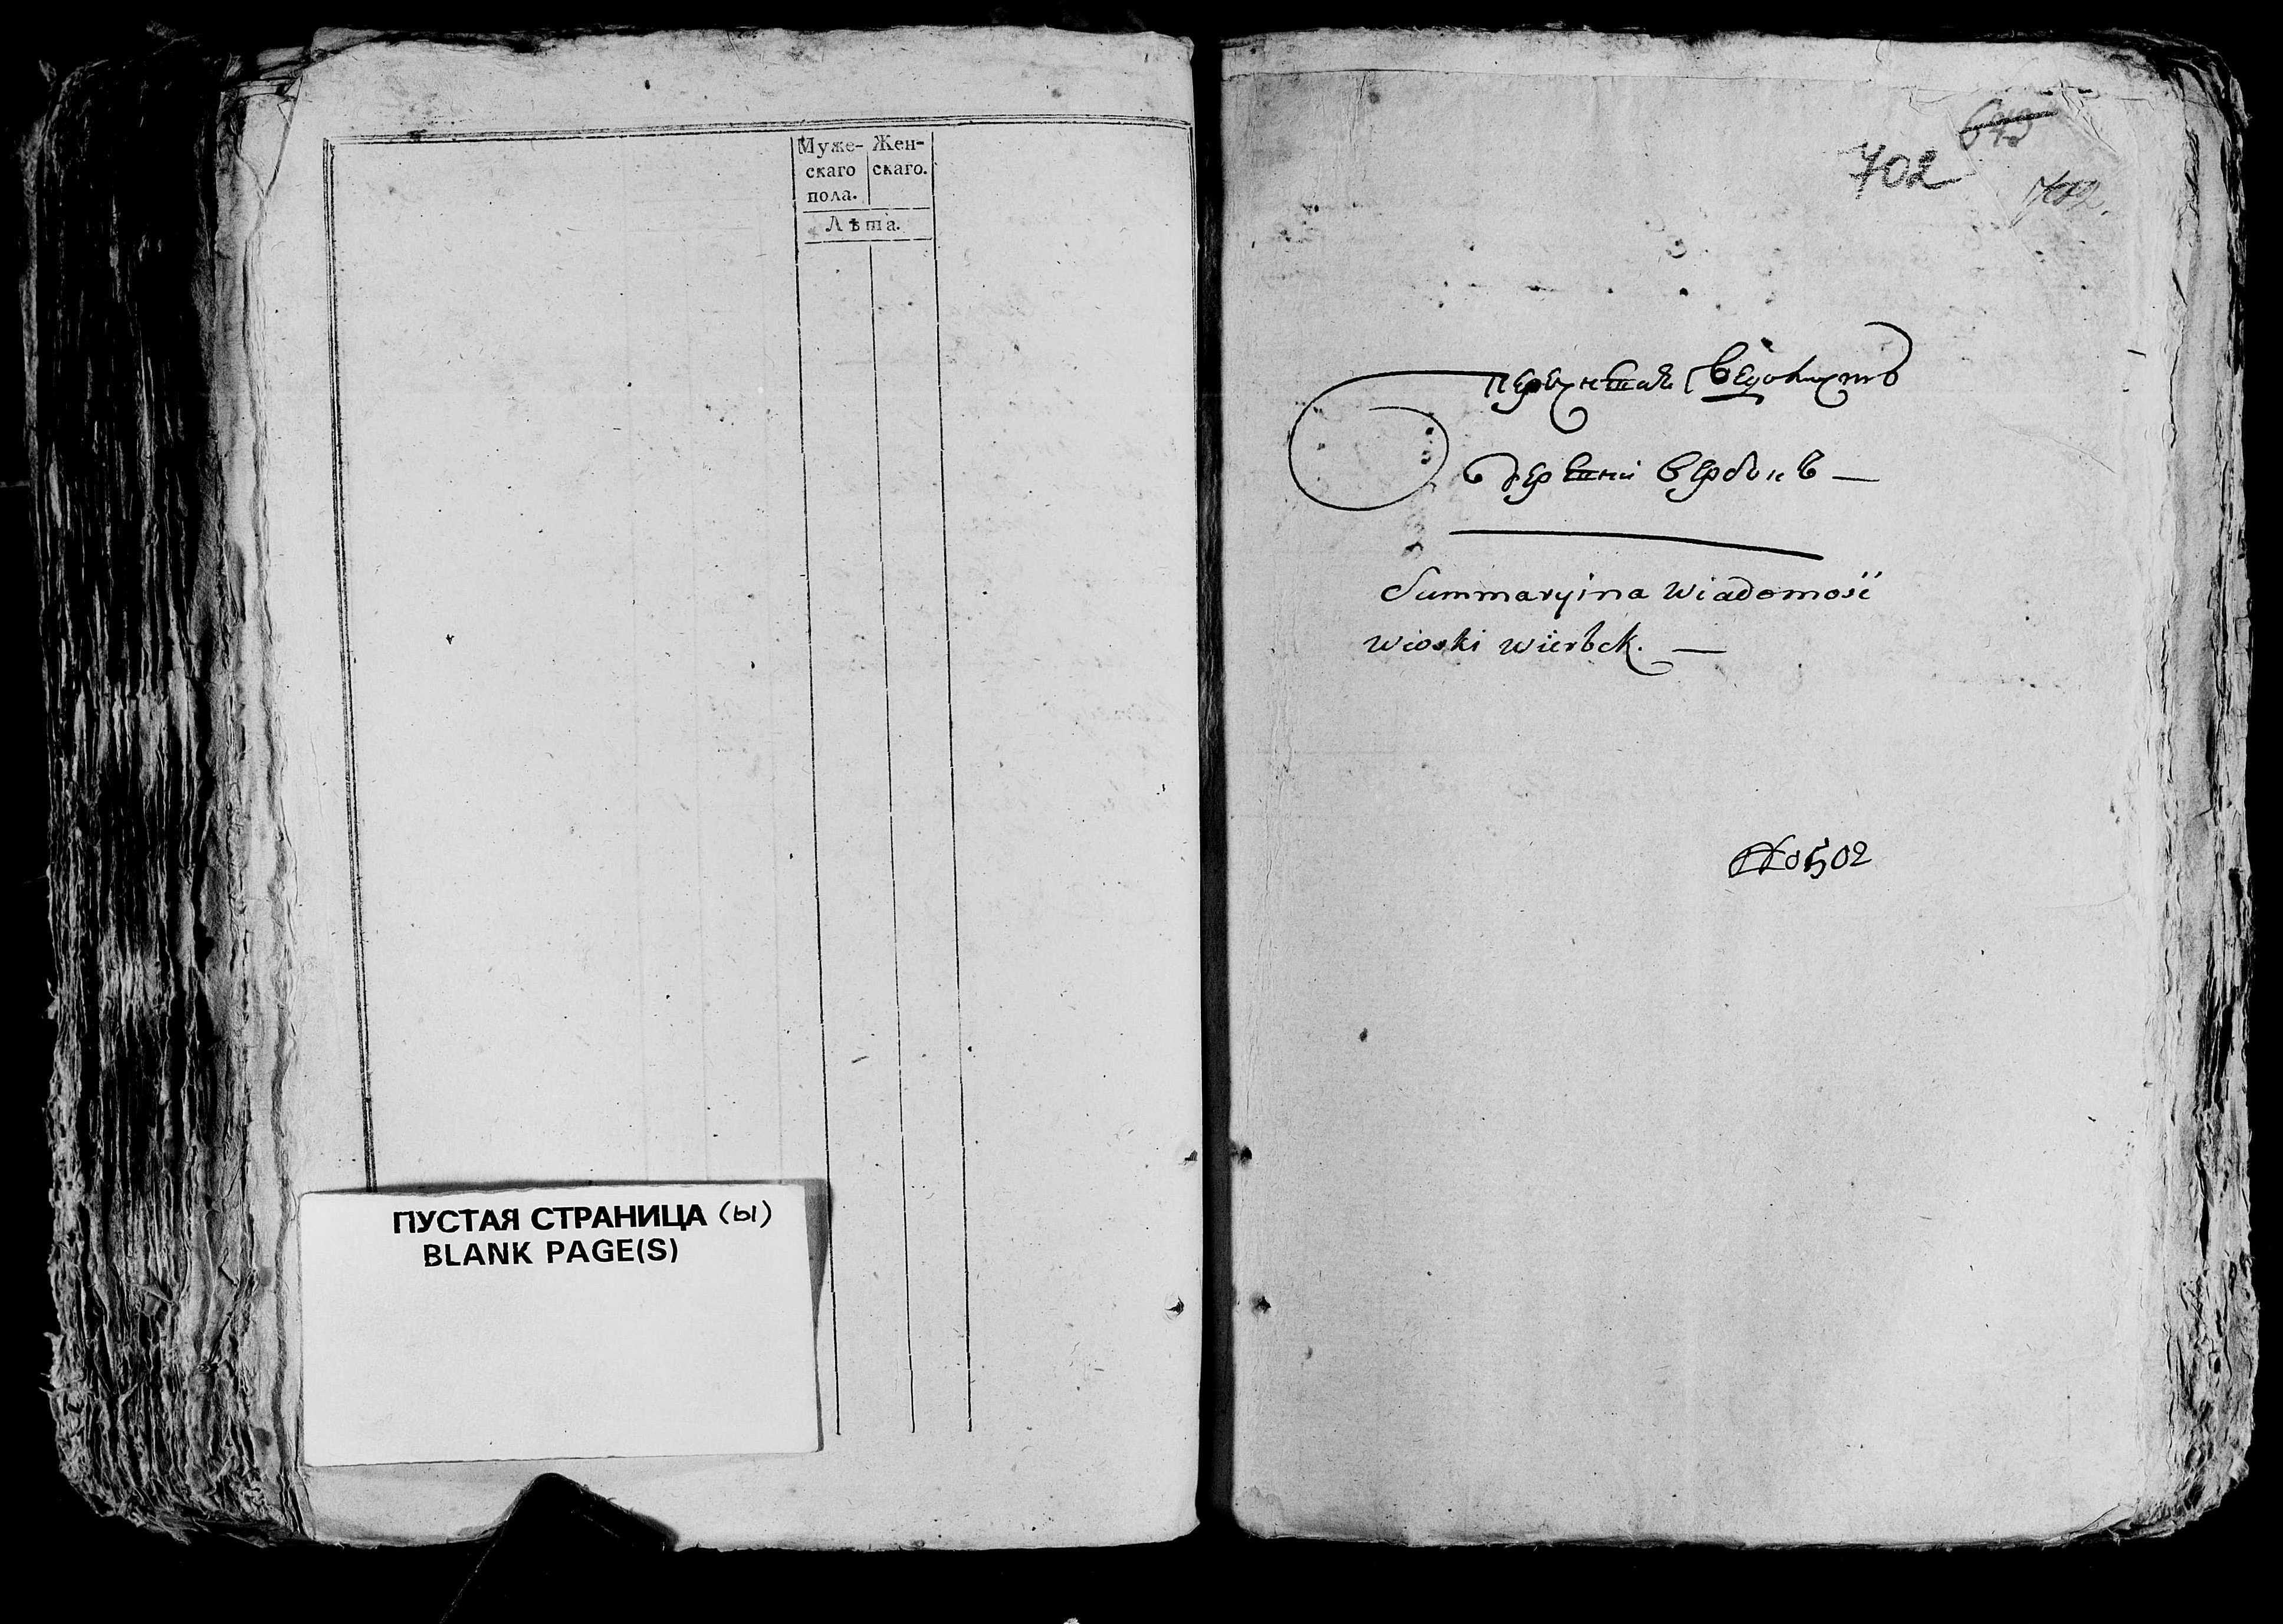 Муже- Жен-
скаго скаго.
пола.
Лѣта.
ПУСТАЯ СТРАНИЦА (Ы)
BLANK PAGE(S)
643
702
702.
перечневая ведомость
о деревни вербокъ —
Summaryina Wiadomość
wioski wierbek. —
No 502